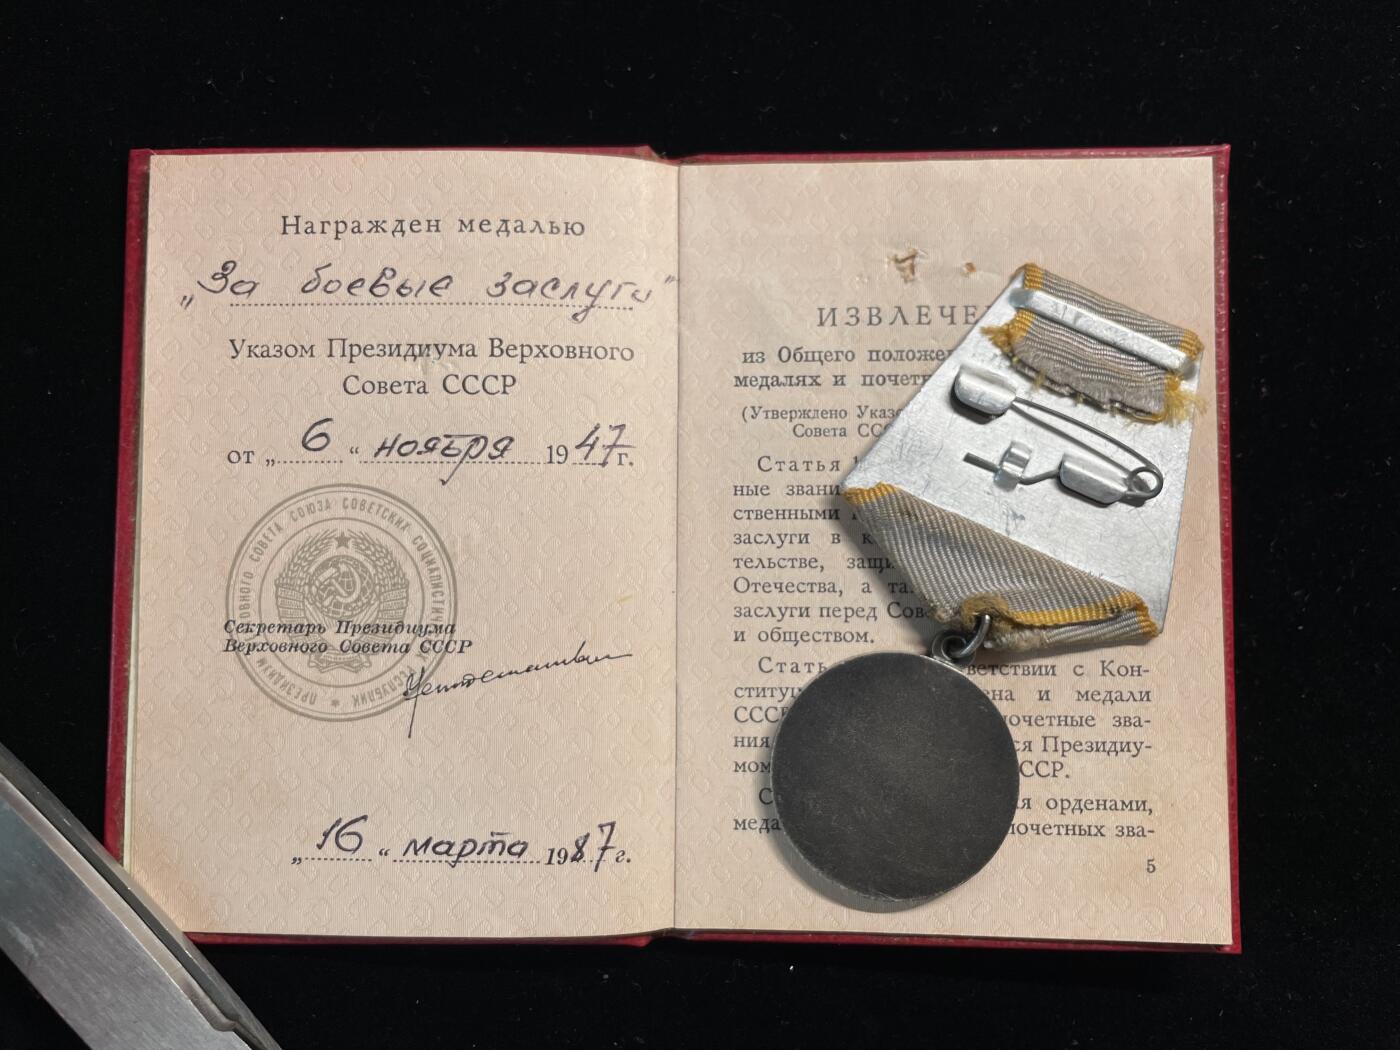 Награжден медалью
„За боевые заслуги"
Указом Президиума Верховного
Совета СССР
от „ 6 “ ноября 1947г.
ПРЕЗИДИУМ ВЕРХОВНОГО СОВЕТА СОЮЗА СОВЕТСКИХ СОЦИАЛИСТИЧЕСКИХ РЕСПУБЛИК
Секретарь Президиума
Верховного Совета СССР
„ 16 “ марта 1987 г.
ИЗВЛЕЧЕ
из Общего положе
медалях и почетн
(Утверждено Указ
Совета СС
Статья 1
ные звани
ственными
заслуги в к
тельстве, защи
Отечества, а та
заслуги перед Сов
и обществом.
Стать ветствии с Кон-
ституц ена и медали
СССР почетные зва-
ния ся Президиу-
мом ССР.
С я орденами,
меда почетных зва-
5